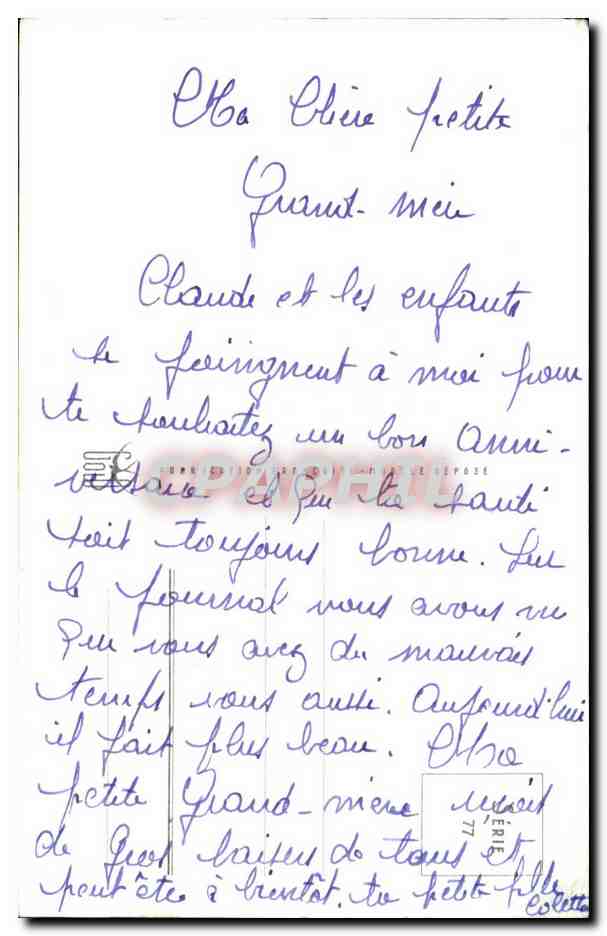 Ma Chère petite
Grand-mère
Claude et les enfants
se joingnent à moi pour
te souhaitez un bon anni-
FABRICATION FRANÇAISE - MODELE DEPOSE
versaire et que ta santé
CPAPHIL
soit toujours bonne. Sur
le journal nous avons vu
que vous avez du mauvais
temps vous aussi. Aujourd'hui
il fait plus beau. Ma
petite Grand-mère reçois
SÉRIE
77
de gros baisers de tous et
peut être à bientôt. ta petite fille
Colette